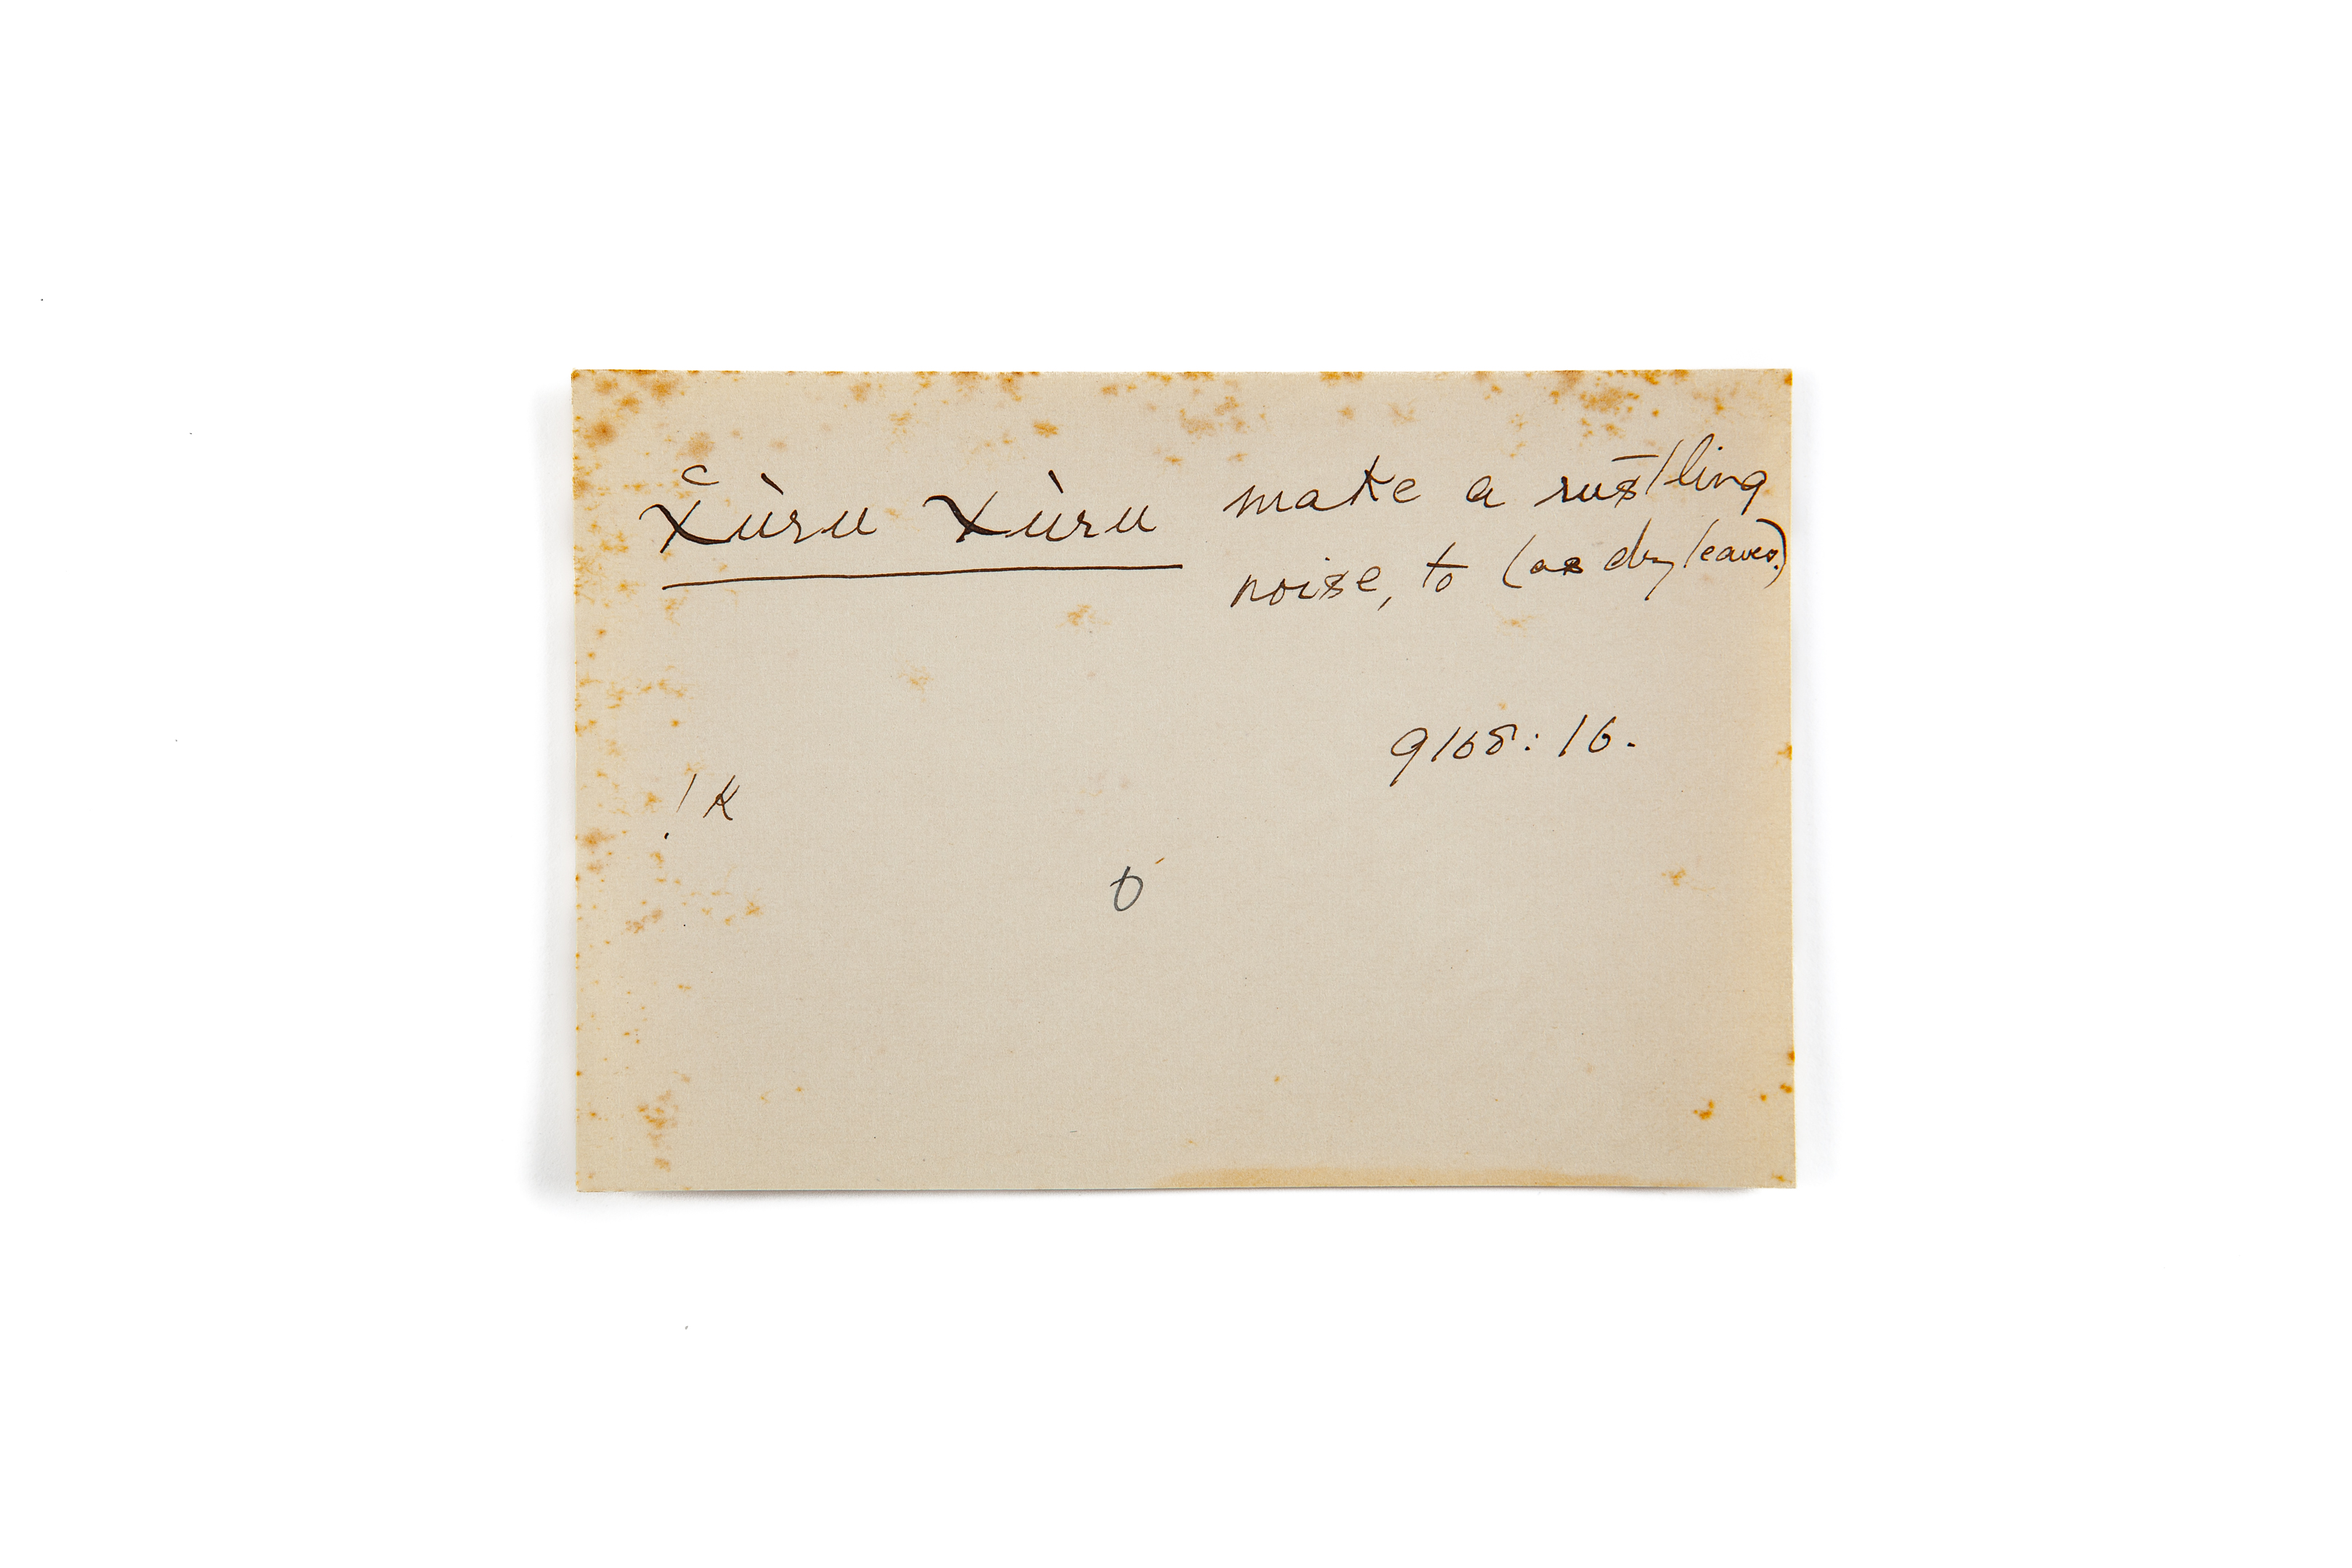 X̆ùru Xùru make a rustling
noise, to (as dry leaves.)
9168:16.
!K
0